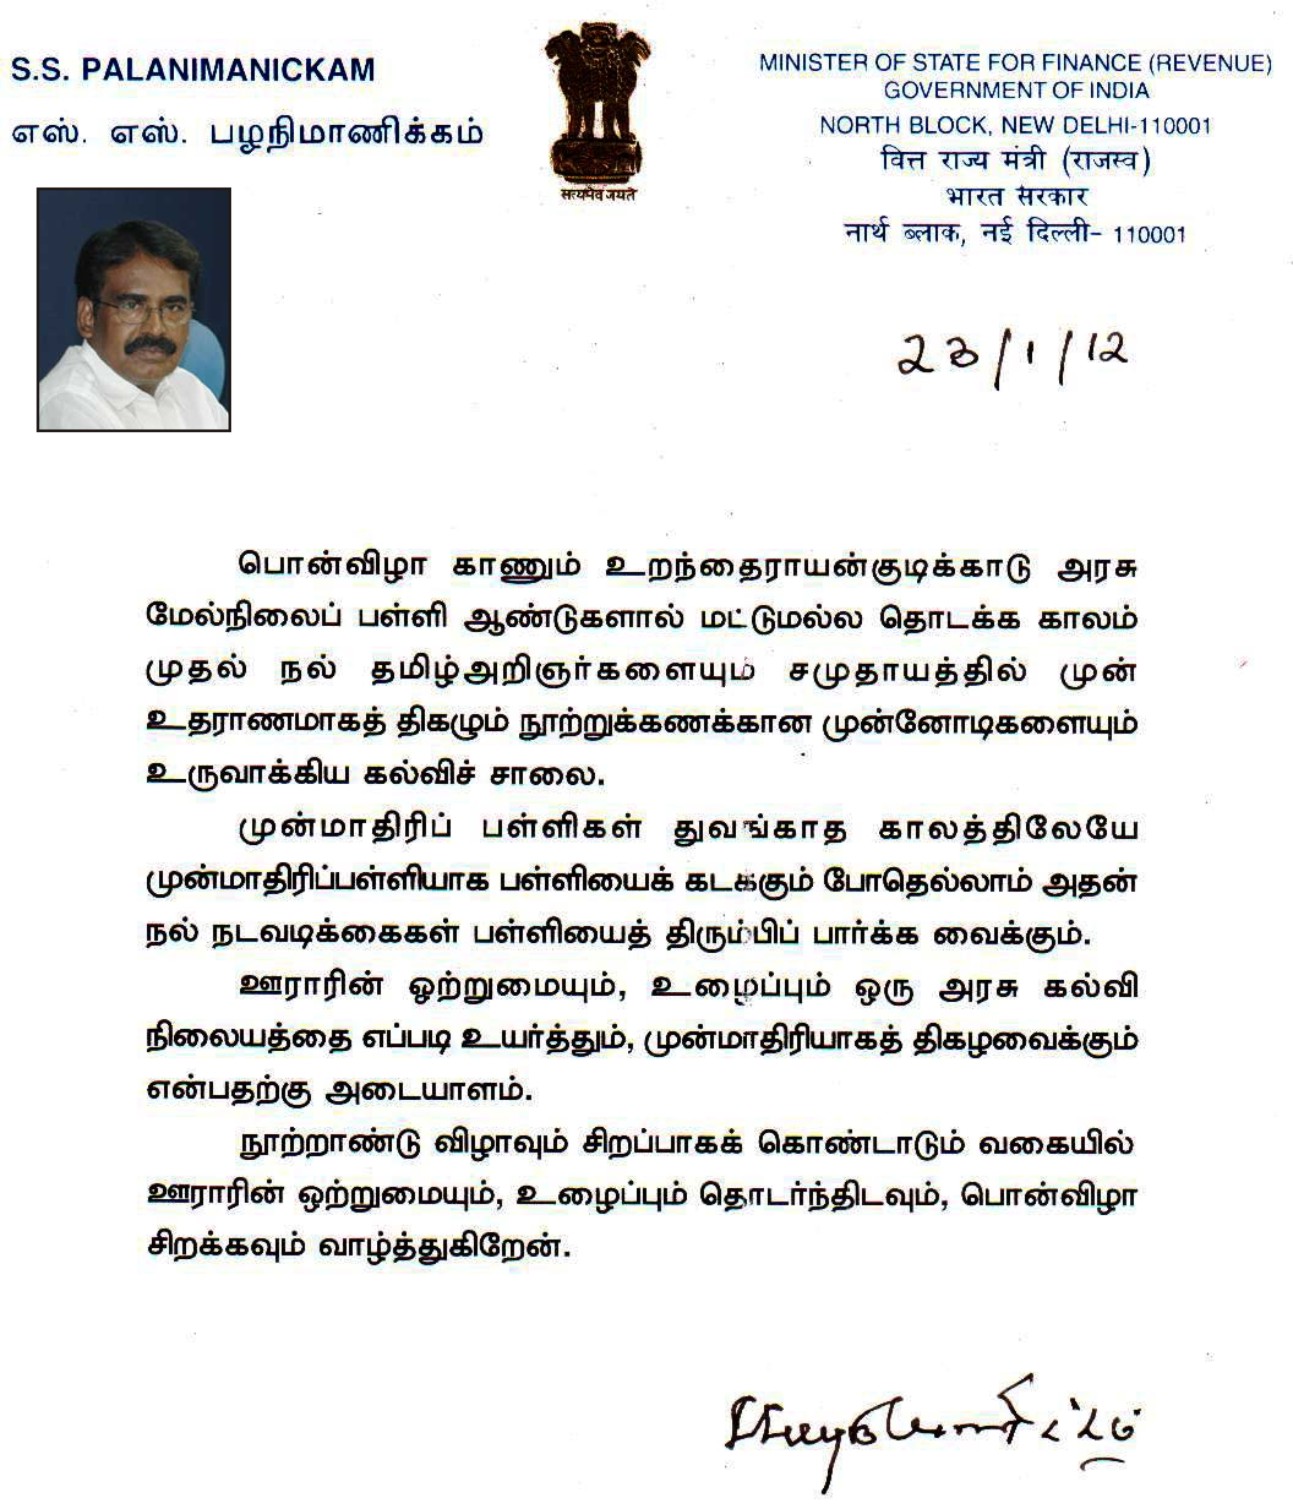 S.S. PALANIMANICKAM
எஸ். எஸ். பழநிமாணிக்கம்
सत्यमेव जयते
MINISTER OF STATE FOR FINANCE (REVENUE)
GOVERNMENT OF INDIA
NORTH BLOCK, NEW DELHI-110001
वित्त राज्य मंत्री (राजस्व)
भारत सरकार
नार्थ ब्लाक, नई दिल्ली- 110001
23/1/12
பொன்விழா காணும் உறந்தைராயன்குடிக்காடு அரசு
மேல்நிலைப் பள்ளி ஆண்டுகளால் மட்டுமல்ல தொடக்க காலம்
முதல் நல் தமிழ்அறிஞர்களையும் சமுதாயத்தில் முன்
உதராணமாகத் திகழும் நூற்றுக்கணக்கான முன்னோடிகளையும்
உருவாக்கிய கல்விச் சாலை.
முன்மாதிரிப் பள்ளிகள் துவங்காத காலத்திலேயே
முன்மாதிரிப்பள்ளியாக பள்ளியைக் கடக்கும் போதெல்லாம் அதன்
நல் நடவடிக்கைகள் பள்ளியைத் திரும்பிப் பார்க்க வைக்கும்.
ஊராரின் ஒற்றுமையும், உழைப்பும் ஒரு அரசு கல்வி
நிலையத்தை எப்படி உயர்த்தும், முன்மாதிரியாகத் திகழவைக்கும்
என்பதற்கு அடையாளம்.
நூற்றாண்டு விழாவும் சிறப்பாகக் கொண்டாடும் வகையில்
ஊராரின் ஒற்றுமையும், உழைப்பும் தொடர்ந்திடவும், பொன்விழா
சிறக்கவும் வாழ்த்துகிறேன்.